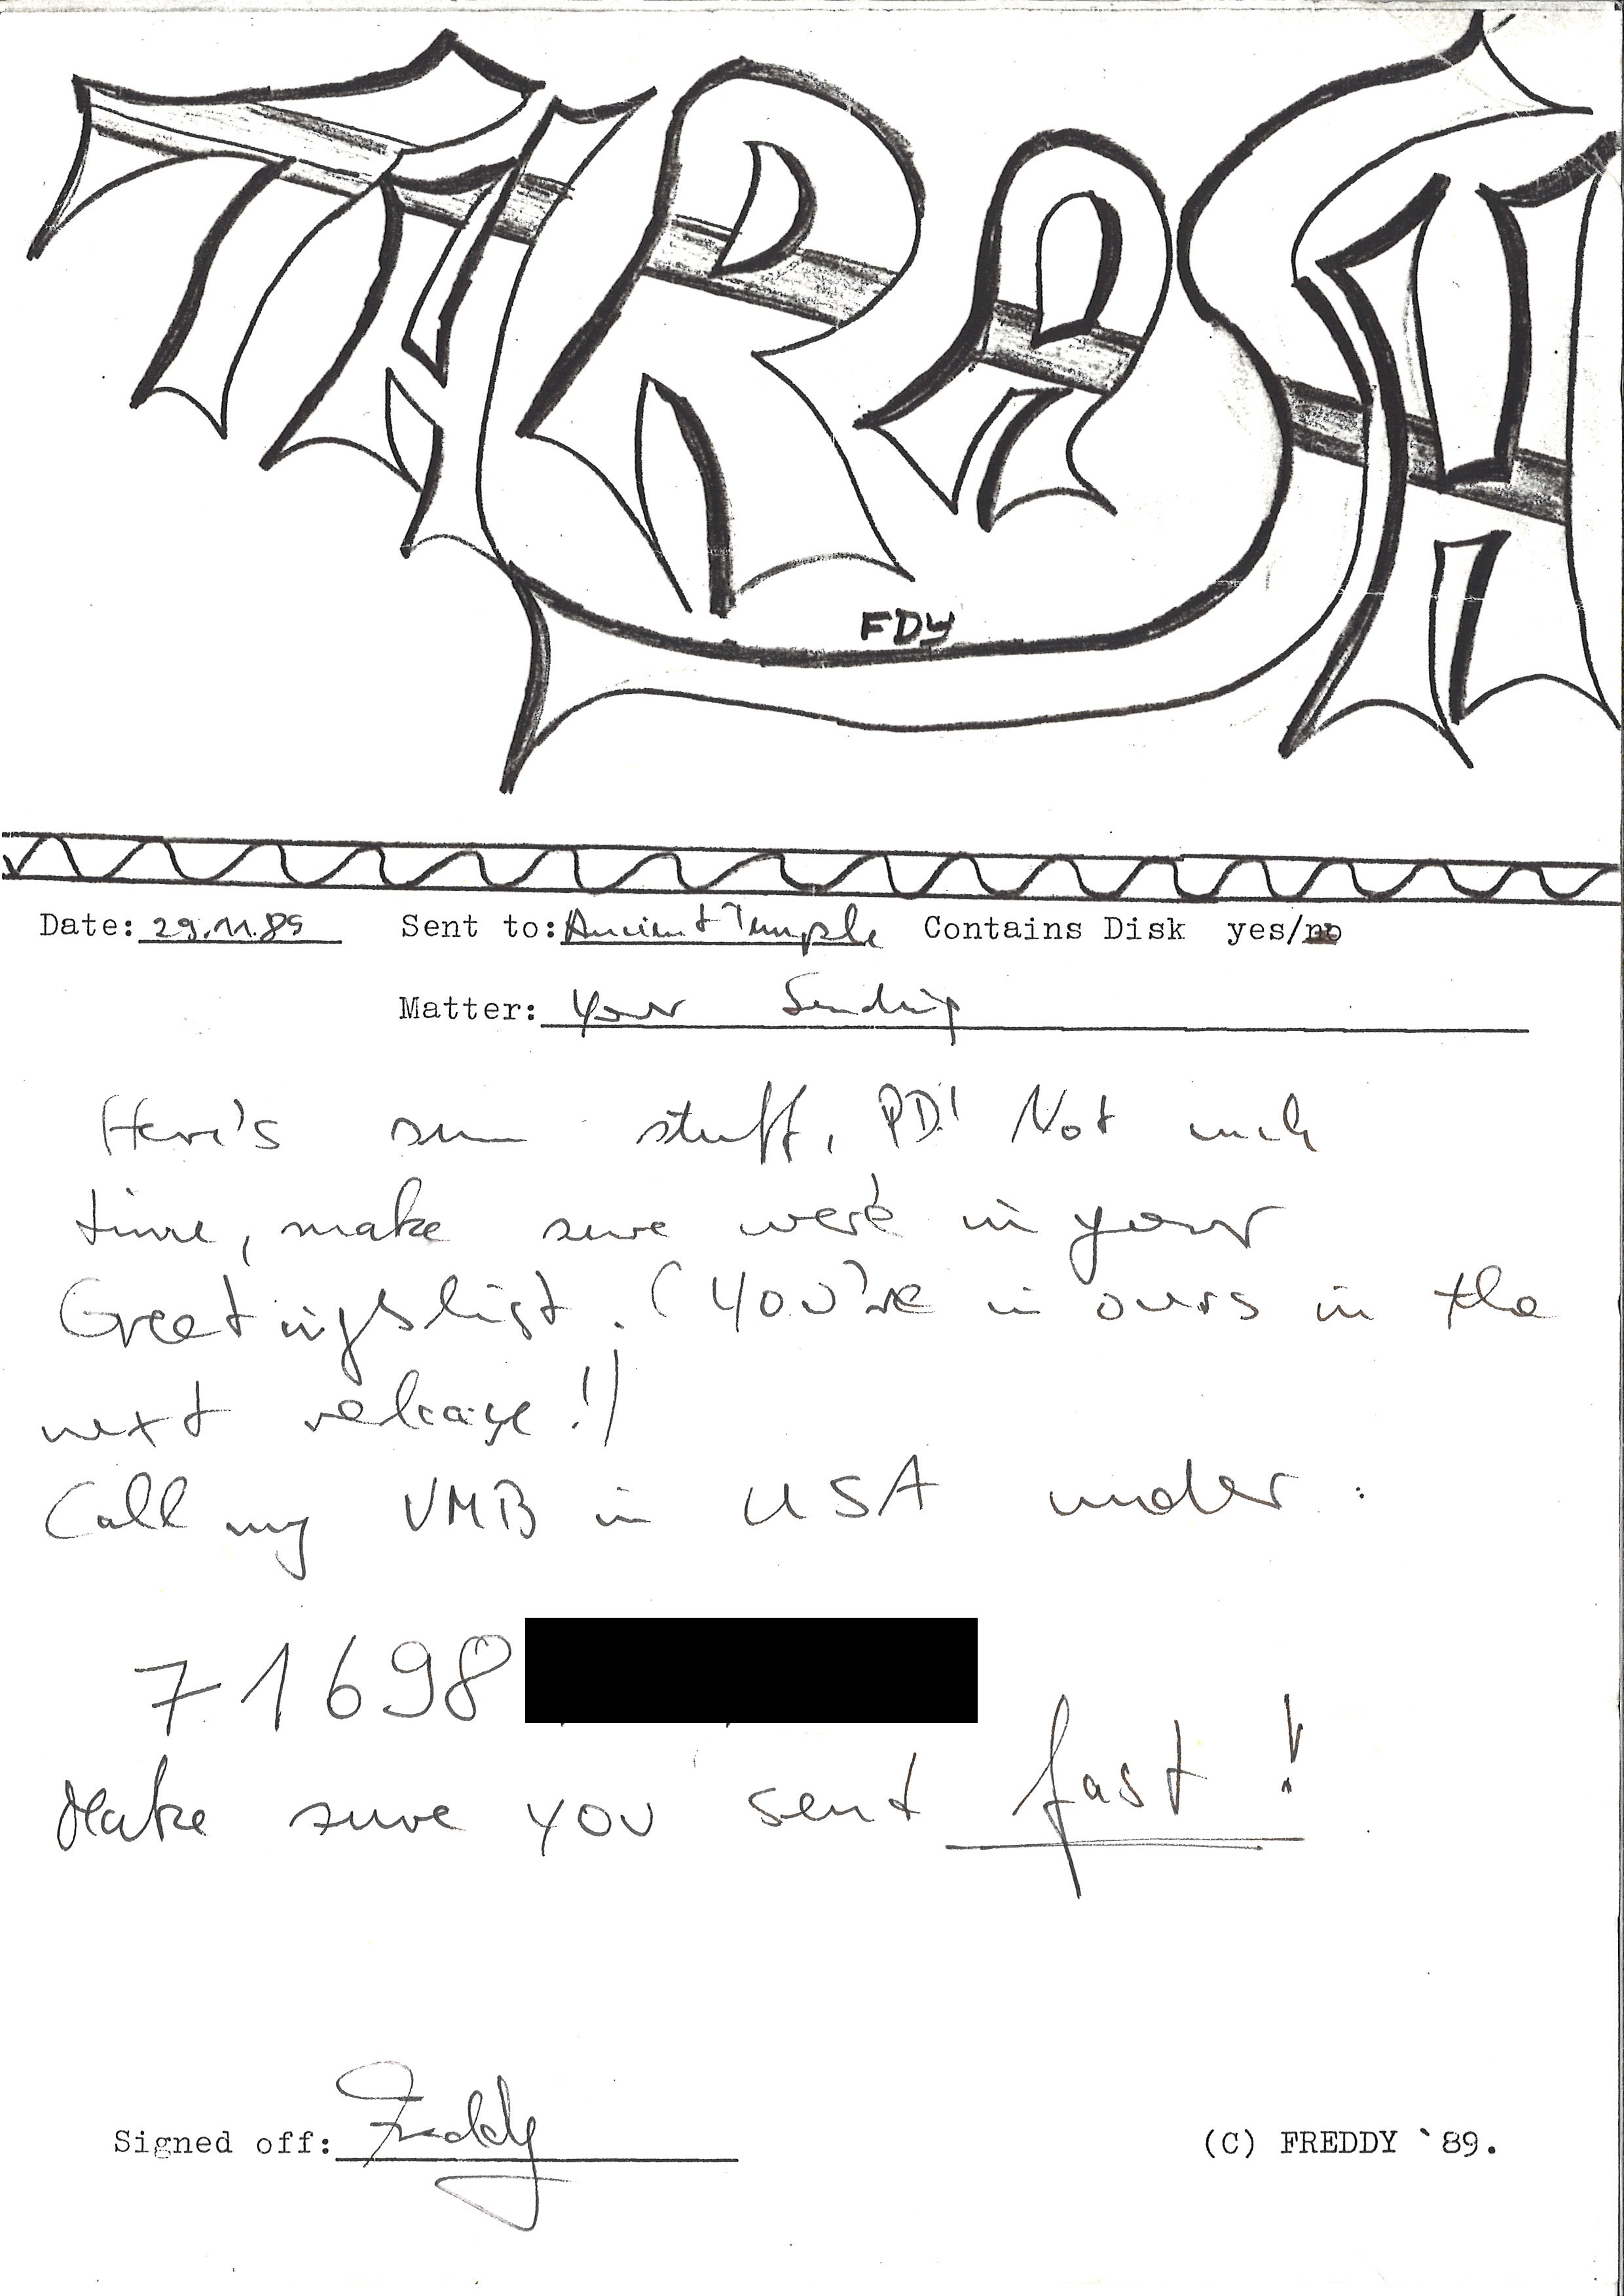 THRASH
FDY
Date: 29.11.89 Sent to: Ancient Temple Contains Disk yes/no
Matter: Your Sending
Here's sum stuff, PD! Not much
time, make sure we're in your
Greetingslist. (YOU're in ours in the
next release!)
Call my VMB in USA under:
71698
Make sure you sent fast!
Signed off: Freddy (C) FREDDY `89.